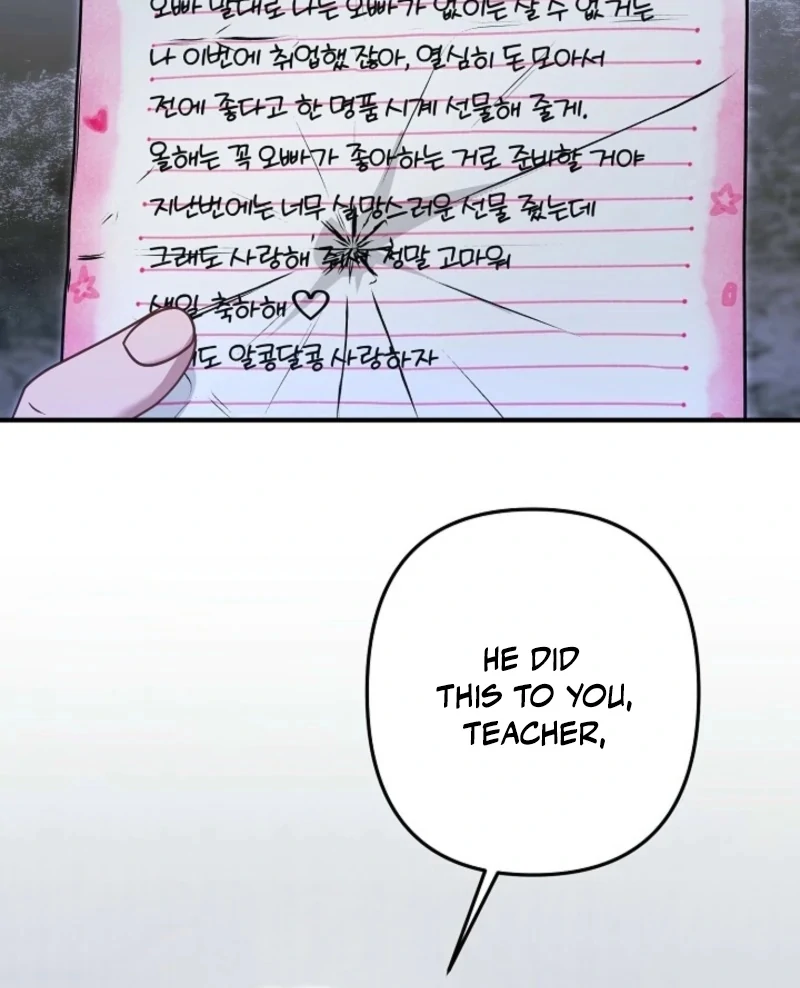 오빠 말대로 나는 오빠가 없이는 살 수 없거든
나 이번에 취업했잖아, 열심히 돈 모아서
전에 좋다고 한 명품 시계 선물해 줄게.
올해는 꼭 오빠가 좋아하는 거로 준비할 거야
지난번에는 너무 실망스러운 선물 줬는데
그래도 사랑해 줘서 정말 고마워
생일 축하해♡
도 알콩달콩 사랑하자
HE DID
THIS TO YOU,
TEACHER,